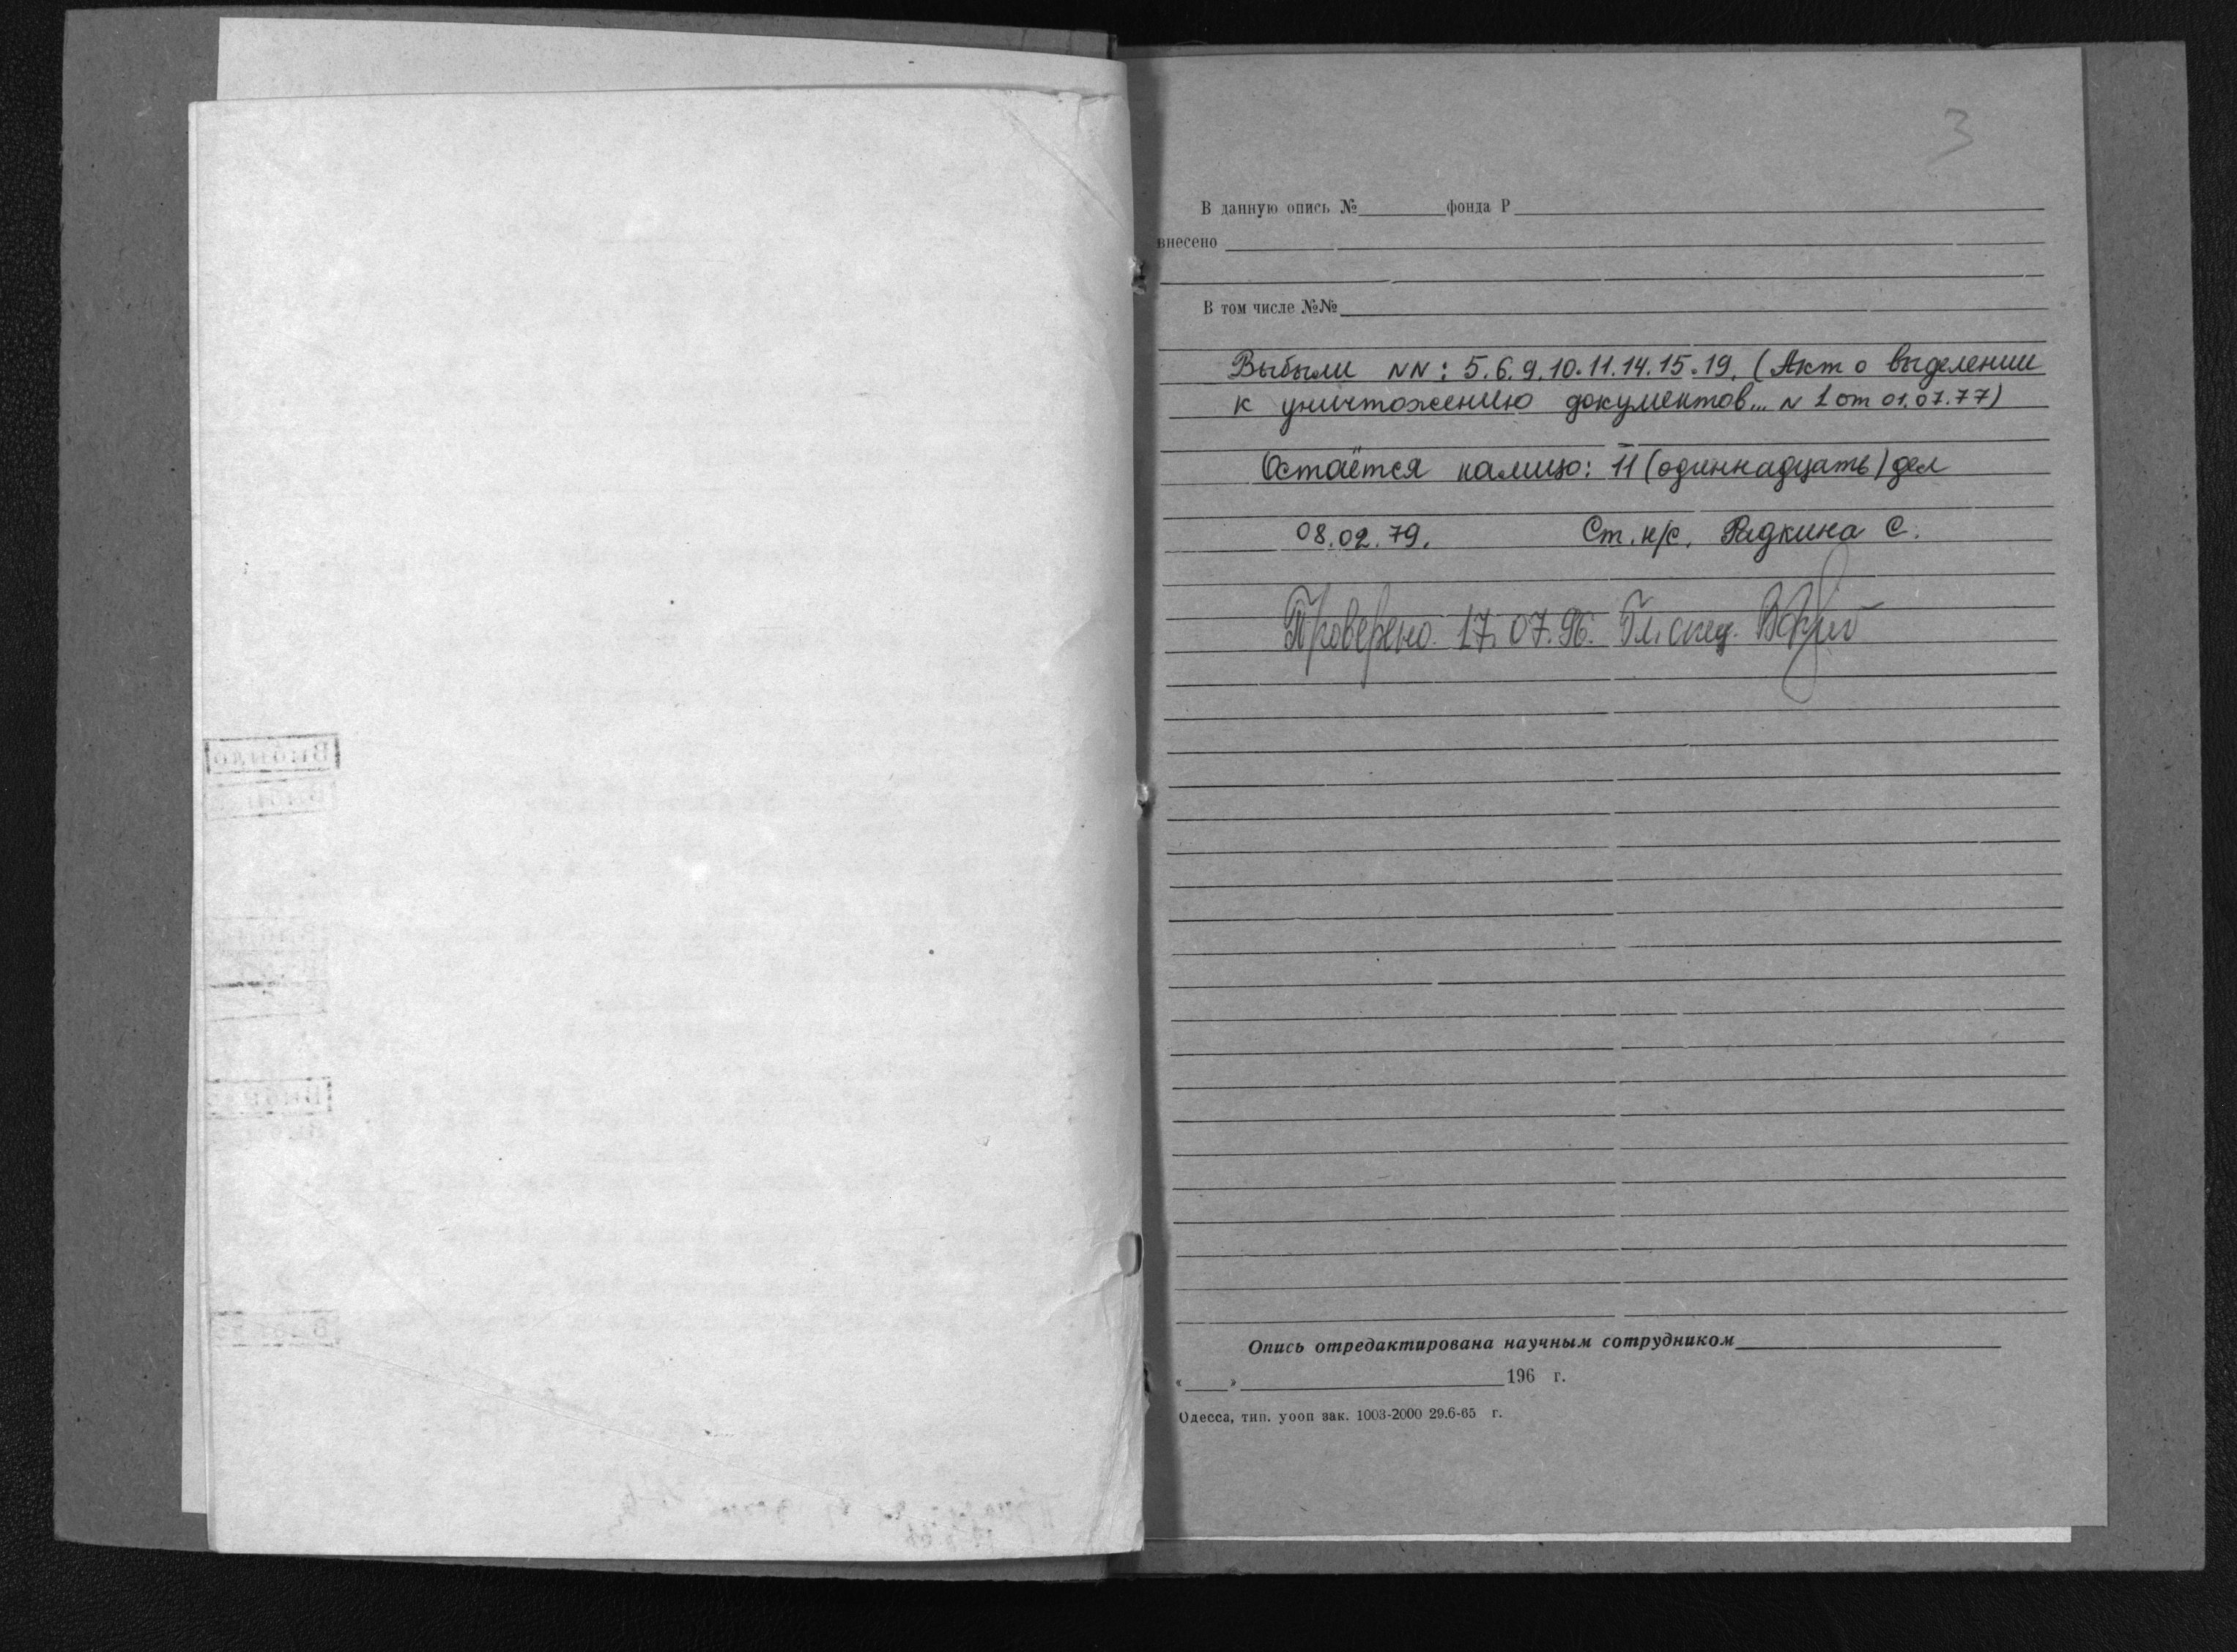 3
В данную опись № фонда Р
внесено
В том числе №№
Выбыли NN: 5.6.9.10.11.14.15.19. (Акт о выделении
к уничтожению документов... N 1 от 01.07.77)
Остаётся налицо: 11 (одиннадцать) дел
08.02.79. Ст. н/с. Радкина С.
Проверено 17.07.96. Гл. спец.
Опись отредактирована научным сотрудником
« » 196 г.
Одесса, тип. уооп зак. 1003-2000 29.6-65 г.
Выбыло